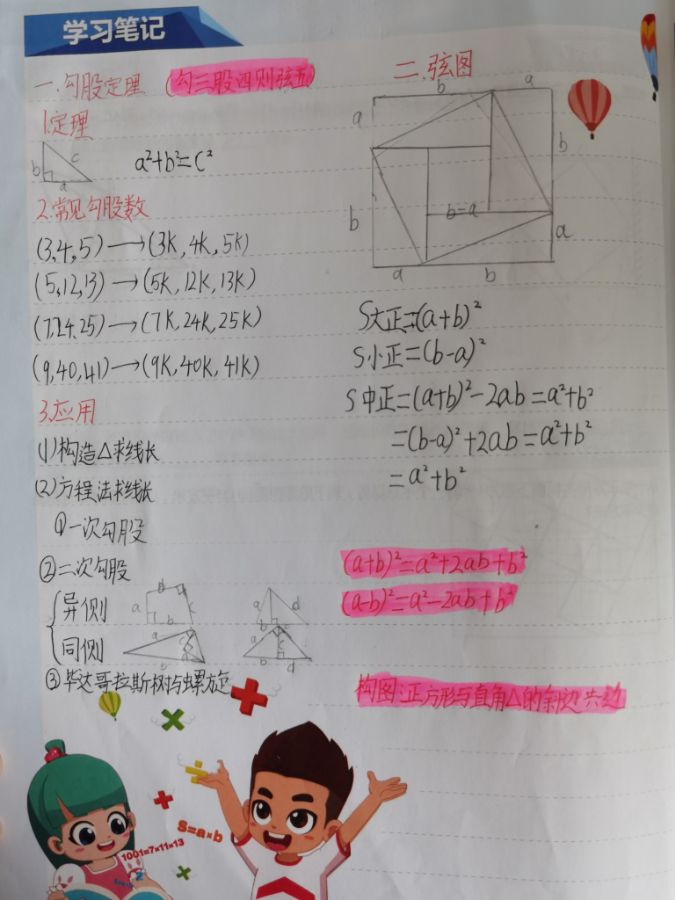 学习笔记
一.勾股定理 (勾三股四则弦五)
1.定理
b c a
a²+b²=c²
2.常见勾股数
(3,4,5)→(3k,4k,5k)
(5,12,13)→(5k,12k,13k)
(7,24,25)→(7k,24k,25k)
(9,40,41)→(9k,40k,41k)
3.应用
(1)构造△求线长
(2)方程法求线长
①一次勾股
②二次勾股
异侧
同侧
③毕达哥拉斯树与螺旋
二.弦图
b a
a
b
b=a
b
a
a b
S大正=(a+b)²
S小正=(b-a)²
S中正=(a+b)²-2ab=a²+b²
=(b-a)²+2ab=a²+b²
=a²+b²
(a+b)²=a²+2ab+b²
(a-b)²=a²-2ab+b²
构图:正方形与直角△的斜边共边
S=a×b
1001=7×11×13